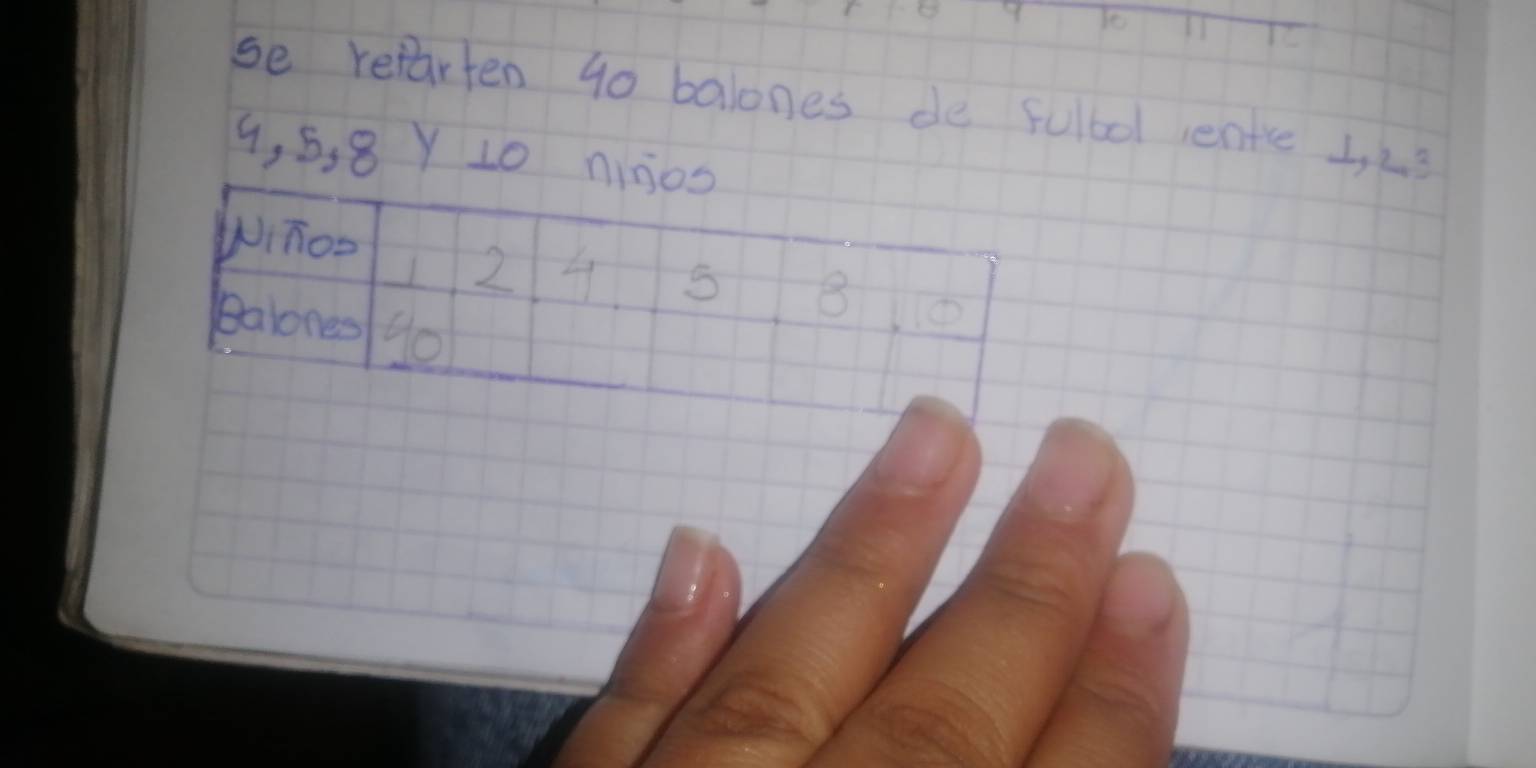 7 8 9 10 11 12
se reparten 40 balones de futbol entre 1, 2, 3
4, 5, 8 y 10 niños
Niños 1 2 4 5 8 10
Balones 40